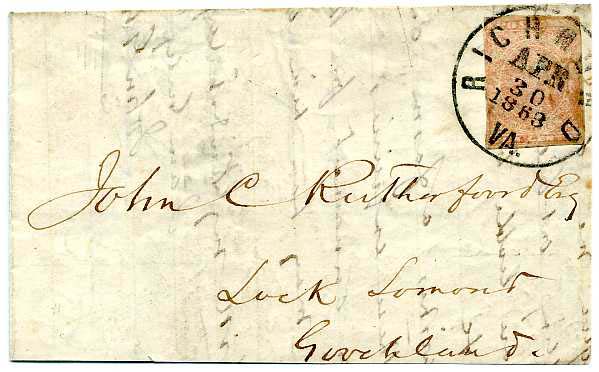 RICHMOND
APR
30
1863
VA.
John C Rutherfoord Esq
Lock Lomond
Goochland.